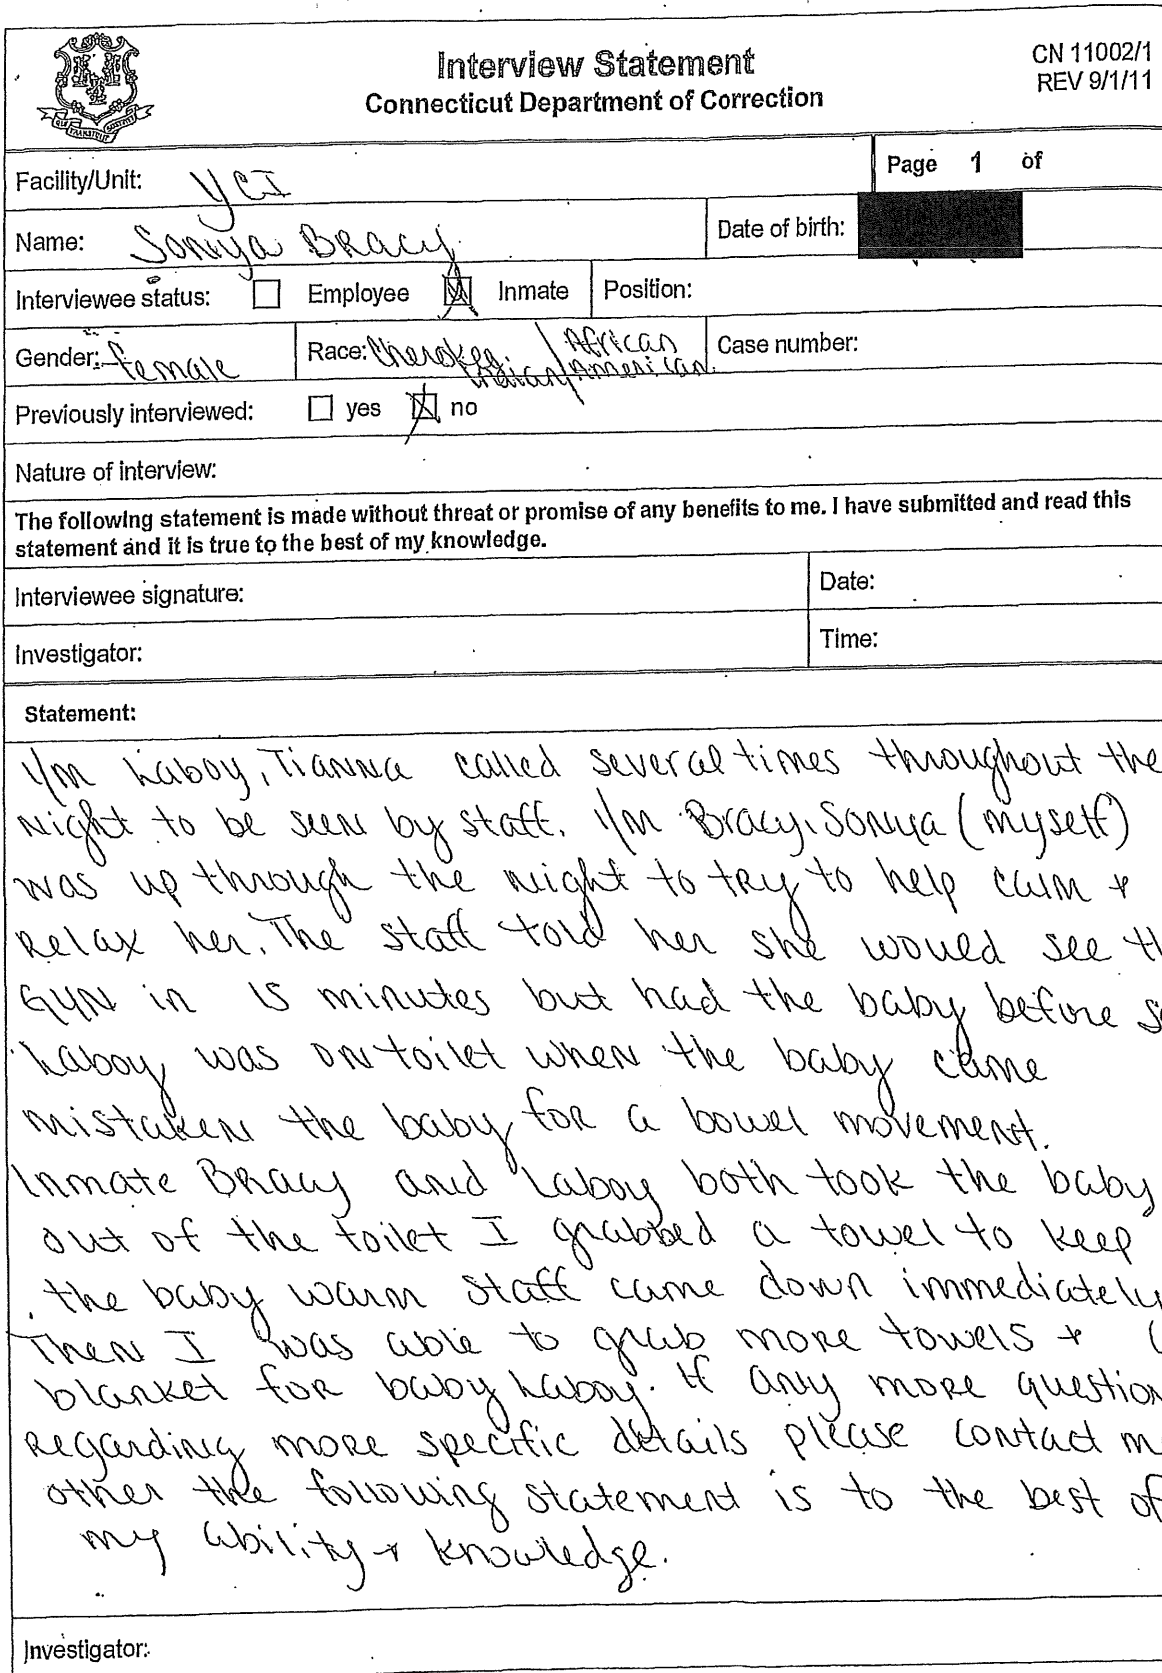 Interview Statement
Connecticut Department of Correction
CN 11002/1
REV 9/1/11
Facility/Unit: YCI
Page 1 of
Name: Soniya Bracy
Date of birth:
Interviewee status: Employee Inmate Position:
Gender: female Race: Cherokee Indian / African American Case number:
Previously interviewed: yes no
Nature of interview:
The following statement is made without threat or promise of any benefits to me. I have submitted and read this
statement and it is true to the best of my knowledge.
Interviewee signature: Date:
Investigator: Time:
Statement:
I/m Laboy, Tianna called several times throughout the
night to be seen by staff. I/m Bracy, Soniya (myself)
was up through the night to try to help calm +
relax her. The staff told her she would see th
GYN in 15 minutes but had the baby before s
Laboy was on toilet when the baby came
mistaken the baby for a bowel movement.
Inmate Bracy and Laboy both took the baby
out of the toilet I grabbed a towel to keep
the baby warm staff came down immediately
Then I was able to grab more towels +
blanket for baby Laboy. If any more question
regarding more specific details please contact m
other the following statement is to the best of
my ability + knowledge.
Investigator: